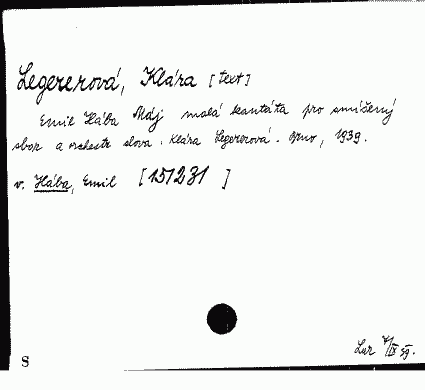 Legererová, Klára [text]
Emil Hába Máj malá kantáta pro smíšený
sbor a orchestr slova. Klára Legererová. Brno, 1939.
v. Hába, Emil [151231 ]
S